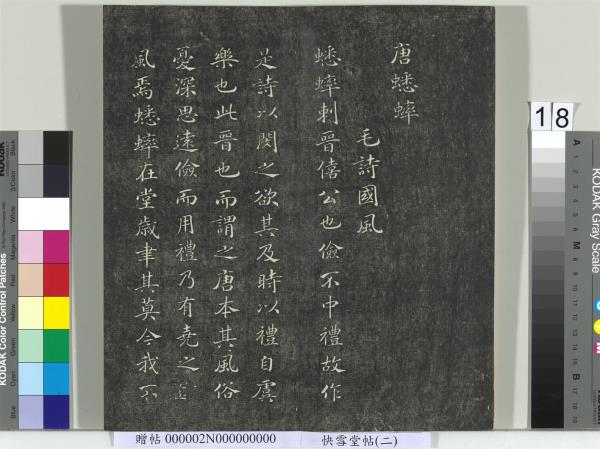 唐蟋蟀
毛詩國風
蟋蟀刺晉僖公也儉不中禮故作
是詩以閔之欲其及時以禮自虞
樂也此晉也而謂之唐本其風俗
憂深思遠儉而用禮乃有堯之
風焉蟋蟀在堂歲聿其莫今我不
18
贈帖 000002N000000000 快雪堂帖(二)
KODAK Color Control Patches
Blue Cyan Green Yellow Red Magenta White 3/Color Black
KODAK Gray Scale
A 1 2 3 4 5 6 M 8 9 10 11 12 13 14 15 B 17 18 19
C Y M